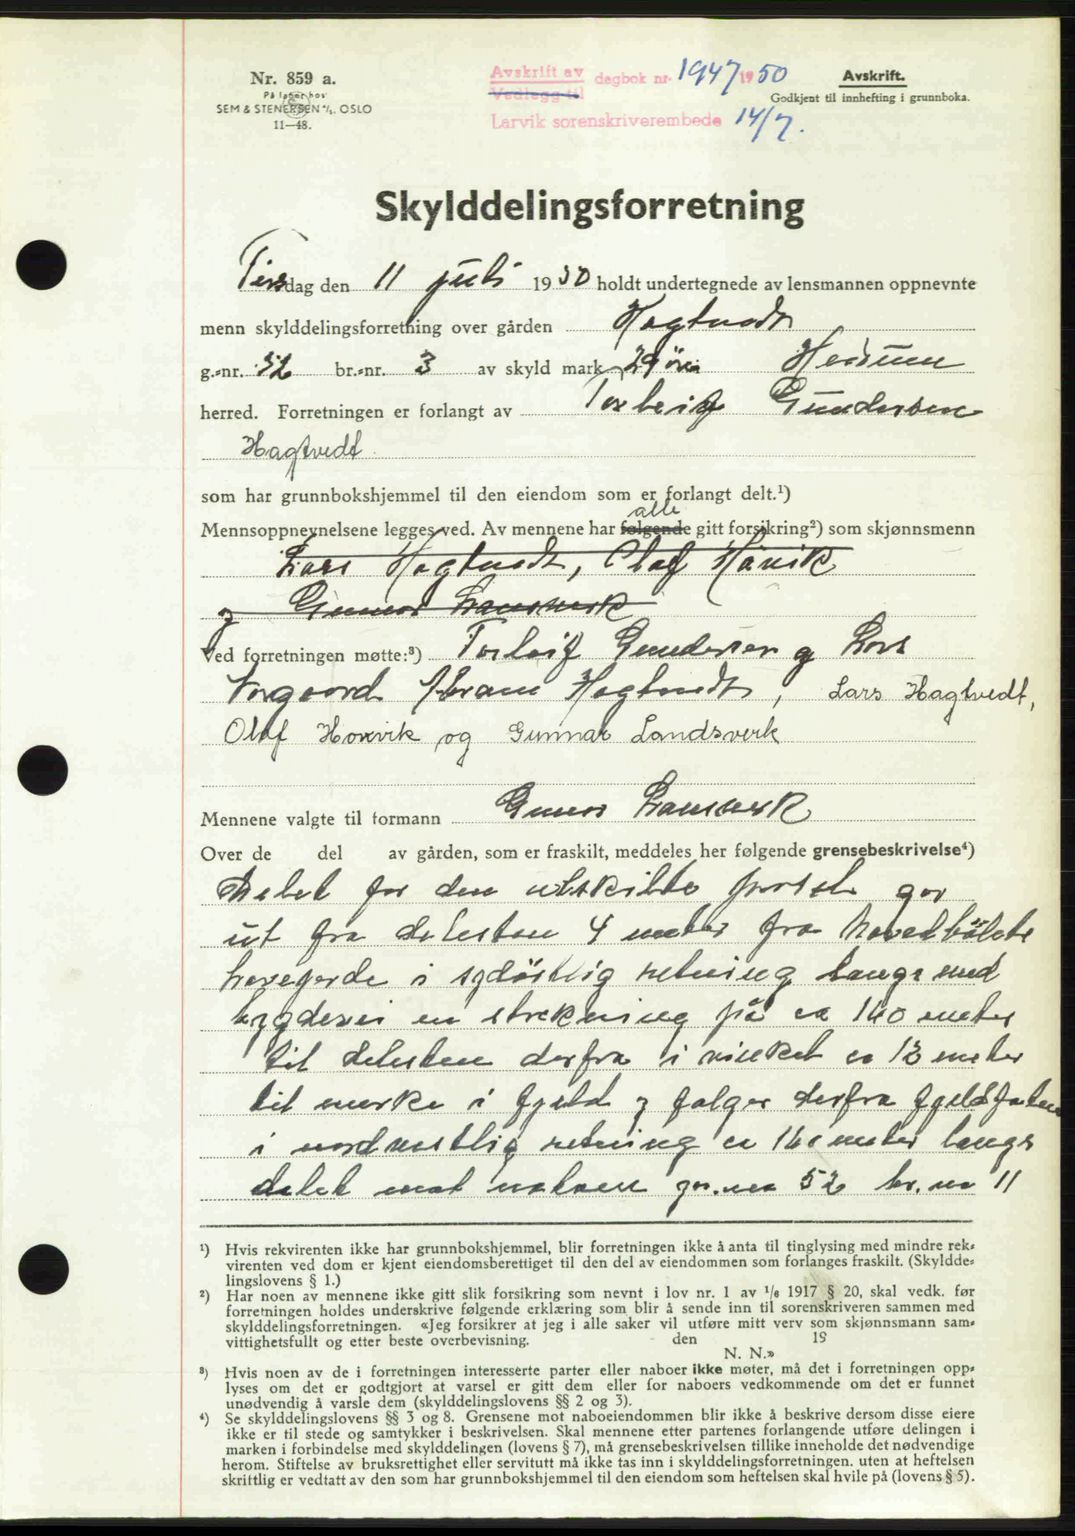 Nr. 859 a.
På lager hos
SEM & STENERSEN A/S. OSLO
11—48.
Avskrift av
Vedlegg til
dagbok nr. 1947 1950
Larvik sorenskriverembede 14/7.
Avskrift.
Godkjent til innhefting i grunnboka.
Skylddelingsforretning
Tirsdag den 11 juli 1950 holdt undertegnede av lensmannen oppnevnte
menn skylddelingsforretning over gården Hagtvedt
g.=nr. 52 br.=nr. 3 av skyld mark 29 öre Hedrum
herred. Forretningen er forlangt av Torleif Gundersen
Hagtvedt
som har grunnbokshjemmel til den eiendom som er forlangt delt.¹)
alle
Mennsoppnevnelsene legges ved. Av mennene har følgende gitt forsikring²) som skjønnsmenn
Lars Hagtvedt, Olaf Håvik
og Gunnar Landsverk
Ved forretningen møtte:³) Torleif Gundersen og Lars
Hagtvedt, Lars Hagtvedt,
Olaf Hovvik og Gunnar Landsverk
Mennene valgte til formann Gunnar Landsverk
Over de del av gården, som er fraskilt, meddeles her følgende grensebeskrivelse⁴)
Delet for den utskilte parsel gar
ut fra delesten 4 meter fra hovedbölets
havegjerde i sydöstlig retning langs med
bygdevei en strekning på ca 140 meter
til delesten derfra i vinkel ca 12 meter
til merke i fjeld og folger derfra fjeldfoten
i nordvestlig retning ca meter langs
delet mot gr. no 52 br. no 11
¹) Hvis rekvirenten ikke har grunnbokshjemmel, blir forretningen ikke å anta til tinglysing med mindre rek=
virenten ved dom er kjent eiendomsberettiget til den del av eiendommen som forlanges fraskilt. (Skyldde=
lingslovens § 1.)
²) Har noen av mennene ikke gitt slik forsikring som nevnt i lov nr. 1 av 1/6 1917 § 20, skal vedk. før
forretningen holdes underskrive følgende erklæring som blir å sende inn til sorenskriveren sammen med
skylddelingsforretningen. «Jeg forsikrer at jeg i alle saker vil utføre mitt verv som skjønnsmann sam=
vittighetsfullt og etter beste overbevisning. den 19
N. N.»
³) Hvis noen av de i forretningen interesserte parter eller naboer ikke møter, må det i forretningen opp=
lyses om det er godtgjort at varsel er gitt dem eller for naboers vedkommende om det er funnet
unødvendig å varsle dem (skylddelingslovens §§ 2 og 3).
⁴) Se skylddelingslovens §§ 3 og 8. Grensene mot naboeiendommen blir ikke å beskrive dersom disse eiere
ikke er til stede og samtykker i beskrivelsen. Skal mennene etter partenes forlangende utføre delingen i
marken i forbindelse med skylddelingen (lovens § 7), må grensebeskrivelsen tillike inneholde det nødvendige
herom. Stiftelse av bruksrettighet eller servitutt må ikke tas inn i skylddelingsforretningen. uten at heftelsen
skriftlig er vedtatt av den som har grunnbokshjemmel til den eiendom som heftelsen skal hvile på (lovens § 5).